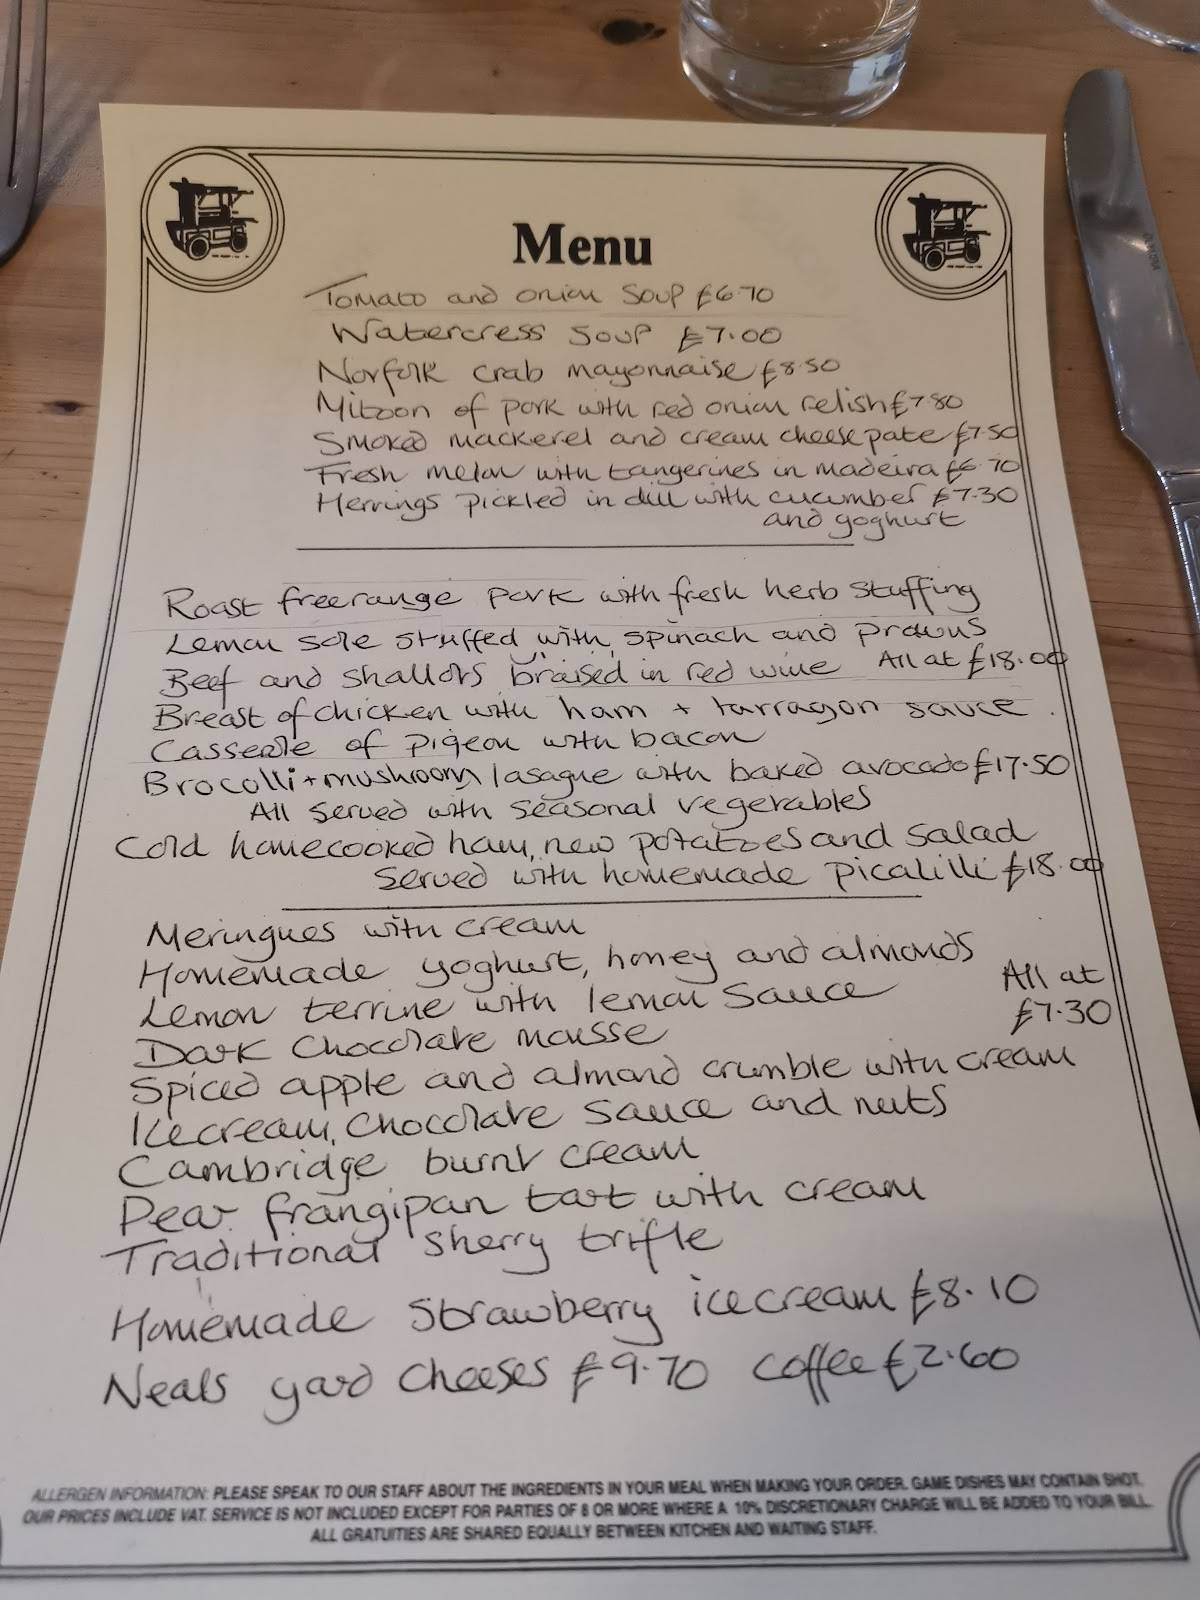 Menu
Tomato and onion soup £6.70
Watercress soup £7.00
Norfolk crab mayonnaise £8.50
Mitoon of pork with red onion relish £7.80
Smoked mackerel and cream cheese pate £7.50
Fresh melon with tangerines in madeira £6.70
Herrings pickled in dill with cucumber £7.30
and yoghurt
Roast freerange pork with fresh herb stuffing
Lemon sole stuffed with spinach and prawns
Beef and shallots braised in red wine All at £18.00
Breast of chicken with ham + tarragon sauce
Casserole of pigeon with bacon
Brocolli + mushroom lasagne with baked avocado £17.50
All served with seasonal vegetables
Cold homecooked ham, new potatoes and salad
served with homemade picalilli £18.00
Meringues with cream
Homemade yoghurt, honey and almonds
Lemon terrine with lemon sauce All at
Dark chocolate mousse £7.30
Spiced apple and almond crumble with cream
Icecream, chocolate sauce and nuts
Cambridge burnt cream
Pear frangipan tart with cream
Traditional sherry trifle
Homemade strawberry icecream £8.10
Neals yard cheeses £9.70 coffee £2.60
ALLERGEN INFORMATION: PLEASE SPEAK TO OUR STAFF ABOUT THE INGREDIENTS IN YOUR MEAL WHEN MAKING YOUR ORDER. GAME DISHES MAY CONTAIN SHOT.
OUR PRICES INCLUDE VAT. SERVICE IS NOT INCLUDED EXCEPT FOR PARTIES OF 8 OR MORE WHERE A 10% DISCRETIONARY CHARGE WILL BE ADDED TO YOUR BILL.
ALL GRATUITIES ARE SHARED EQUALLY BETWEEN KITCHEN AND WAITING STAFF.